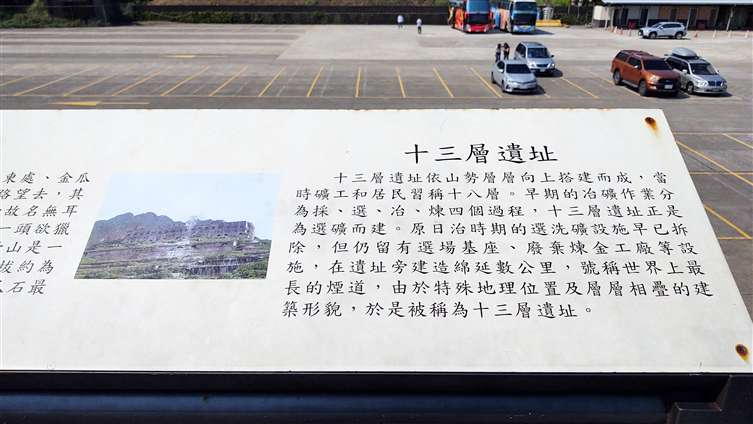 東處、金瓜
路望去，其
故名無耳
一頭欲獵
山是一
拔約為
石最
十三層遺址
十三層遺址依山勢層層向上搭建而成，當
時礦工和居民習稱十八層。早期的冶礦作業分
為採、選、冶、煉四個過程，十三層遺址正是
為選礦而建。原日治時期的選洗礦設施早已拆
除，但仍留有選場基座、廢棄煉金工廠等設
施，在遺址旁建造綿延數公里，號稱世界上最
長的煙道，由於特殊地理位置及層層相疊的建
築形貌，於是被稱為十三層遺址。